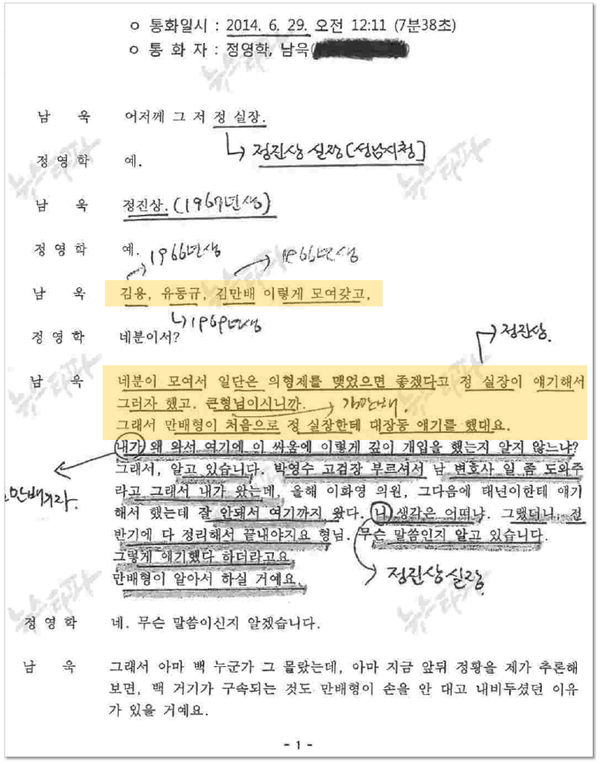 ㅇ 통화일시 : 2014. 6. 29. 오전 12:11 (7분38초)
ㅇ 통 화 자 : 정영학, 남욱(
남 욱 어저께 그 저 정 실장.
정진상 실장[성남시청]
정영학 예.
남 욱 정진상. (1967년생)
정영학 예. 1966년생 1966년생
남 욱 김용, 유동규, 김만배 이렇게 모여갖고,
1969년생
정영학 네분이서?
정진상.
남 욱 네분이 모여서 일단은 의형제를 맺었으면 좋겠다고 정 실장이 얘기해서
그러자 했고. 큰형님이시니까. 김만배.
그래서 만배형이 처음으로 정 실장한테 대장동 얘기를 했대요.
내가 왜 와서 여기에 이 싸움에 이렇게 깊이 개입을 했는지 알지 않느냐?
그래서, 알고 있습니다. 박영수 고검장 부르셔서 남 변호사 일 좀 도와주
라고 그래서 내가 왔는데, 올해 이화영 의원, 그다음에 태년이한테 얘기
해서 했는데 잘 안돼서 여기까지 왔다. 니 생각은 어떠냐. 그랬더니, 전
반기에 다 정리해서 끝내야지요 형님. 무슨 말씀인지 알고 있습니다.
그렇게 얘기했다 하더라고요
만배형이 알아서 하실 거예요.
정진상실장
정영학 네. 무슨 말씀이신지 알겠습니다.
남 욱 그래서 아마 백 누군가 그 몰랐는데, 아마 지금 앞뒤 정황을 제가 추론해
보면, 백 거기가 구속되는 것도 만배형이 손을 안 대고 내비두셨던 이유
가 있을 거예요.
- 1 -
뉴스타파